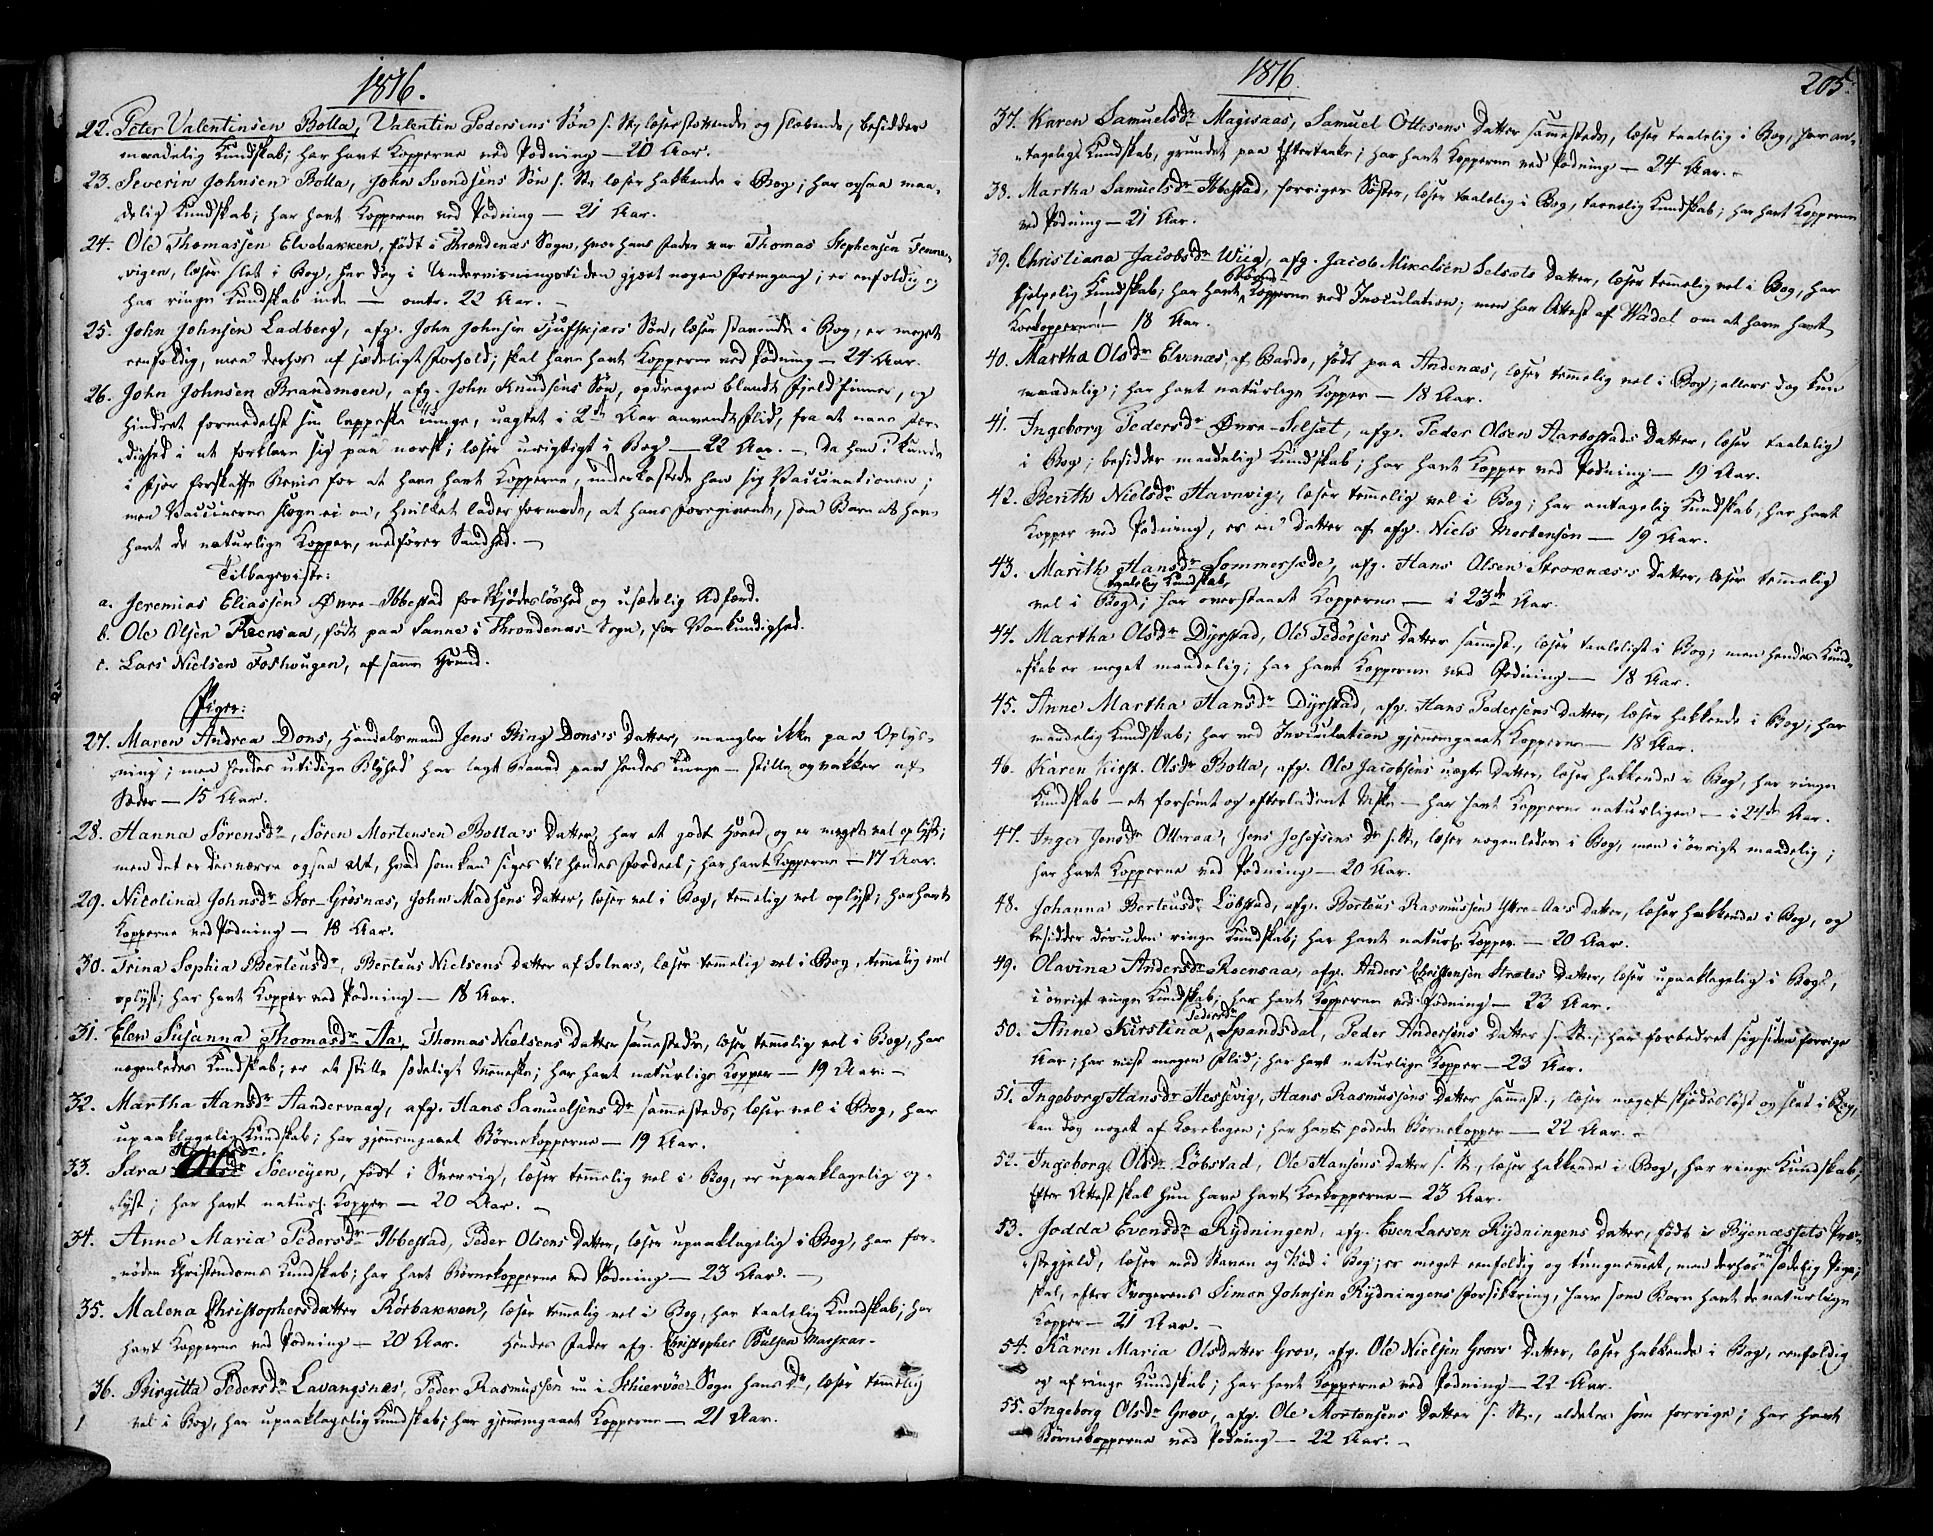 1816.
22. Peter Valentinsen Bolla, Valentin Pedersens Søn s. St., læser stottende og slæbende, besidder
maadelig Kundskab; har havt Kopperne ved Podning — 20 Aar.
23. Severin Johnsen Bolla, John Svendsens Søn s. St. læser hakkende i Bog; har ogsaa maa-
delig Kundskab; har havt Kopperne ved Podning — 21 Aar.
24. Ole Thomassen Elvebakken, født i Throndenæs Sogn, hvor hans Fader var Thomas Stephensen Tenne-
vigen, læser slet i Bog, har dog i Undervisningstiden gjort nogen Fremgang; er enfoldig og
har ringe Kundskab inde — omtr. 22 Aar. —
25. John Johnsen Ladberg, afg. John Johnsen Tjufskjærs Søn, læser stavende i Bog, er meget
eenfoldig, men derhos af sædeligt Forhold; skal have havt Kopperne ved Podning — 24 Aar.
26. John Johnsen Brandmoen, afg. John Knudsens Søn, opdragen blandt Fjeldfinner, og
hindret formedelst sin lappiske Tunge, uagtet i 2de Aar anvendt Flid, fra at naae Fær-
dighed i at forklare sig paa norsk; læser urigtigt i Bog — 22 Aar. — Da han ei kunde
i Fjor forskaffe Beviis for at have havt Kopperne, underkastede han sig Vaccinationen;
men Vaccinerne sloge ei an, hvilket lader formode, at hans Foregivende, som Barn at have
havt de naturlige Kopper, medfører Sandhed. —
Tilbageviste:
a. Jeremias Eliassen Øvre-Ibbestad for Skjødesløshed og usædelig Adfærd.
b. Ole Olsen Roensaa, født paa Sanne i Throndenæs-Sogn, for Vankundighed.
c. Lars Nielsen Foshougen, af samme Grund.
Piger:
27. Maren Andrea Dons, Handelsmand Jens Bing Dons's Datter, mangler ikke paa Oplys-
ning; men hendes utidige Blyhed har lagt Baand paa hendes Tunge — stille og vakker af
Sæder — 15 Aar.
28. Hanna Sørensdr, Søren Mortensen Bolla's Datter, har et godt Hoved og er meget vel oplyst;
men det er desværre ogsaa alt, hvad som kan siges til hendes Fordeel; har havt Kopperne — 17 Aar.
29. Nicolina Johnsdr Stor-Gresnæs, John Madsens Datter, læser vel i Bog, temmelig vel oplyst; har havt
Kopperne ved Podning — 18 Aar.
30. Trina Sophia Berteusdr, Berteus Nielsens Datter af Selnæs, læser temmelig vel i Bog, temmelig vel
oplyst; har havt Kopper ved Podning — 18 Aar.
31. Elen Susanna Thomasdr Aa, Thomas Nielsens Datter sammesteds, læser temmelig vel i Bog, har
nogenledes Kundskab; er et stille sædeligt Menneske; har havt naturlige Kopper — 19 Aar. —
32. Martha Hansdr Aandervaag, afg. Hans Samuelsens Dr sammesteds, læser vel i Bog, har
upaaklagelig Kundskab; har gjennemgaaet Børnekopperne — 19 Aar.
33. Sara Soeveyen, født i Sverrig, læser temmelig vel i Bog, er upaaklagelig op-
lyst; har havt naturl. Kopper — 20 Aar. —
34. Anne Maria Pedersdr Ibbestad, Peder Olsens Datter, læser upaaklagelig i Bog, har for-
nøden Christendoms Kundskab; har havt Børnekopperne ved Podning — 23 Aar. —
35. Malena Christophersdatter Rørbakken, læser temmelig vel i Bog, har taalelig Kundskab; har
havt Kopperne ved Podning — 20 Aar. Hendes Fader afg. Christopher Bulsen
36. Birgitta Pedersdr Lavangsnæs, Peder Rasmussen nu i Skiervøe-Sogn hans Dr, læser temmelig
vel i Bog, har upaaklagelig Kundskab; har gjennemgaaet Kopperne — 21 Aar.
1816.
205.
37. Karen Samuelsdr Magesaas, Samuel Ottesens Datter sammesteds, læser taalelig i Bog, har an-
tagelig Kundskab, grundet paa Eftertanke; har havt Kopperne ved Podning — 24 Aar. —
38. Martha Samuelsdr Ibbestad, forriges Søster, læser taalelig i Bog, taalelig Kundskab; har havt Kopperne
ved Podning — 21 Aar.
39. Christiana Jacobsdr Wiig, afg. Jacob Mikelsen Selsets Datter, læser temmelig vel i Bog, har
hjelpelig Kundskab; har havt Kopperne ved Inoculation; men har Attest af Wadel om at have havt
Koekopperne — 18 Aar.
40. Martha Olsdr Elvenæs, af Bardo, født paa Andenæs, læser temmelig vel i Bog; ellers dog kun
maadelig; har havt naturlige Kopper — 18 Aar.
41. Ingeborg Pedersdr Øvre-Selset, afg. Peder Olsen Aarbostads Datter, læser taalelig
i Bog; besidder maadelig Kundskab; har havt Kopper ved Podning — 19 Aar.
42. Berith Nielsdr Havnvig, læser temmelig vel i Bog; har antagelig Kundskab, har havt
Kopper ved Podning, er en Datter af afg. Niels Mortensen — 19 Aar.
43. Marith Hansdr Sommersæde, afg. Hans Olsen Stroenæs's Datter, læser temmelig
taalelig Kundskab,
vel i Bog; har overstaaet Kopperne — i 23de Aar.
44. Martha Olsdr Dyrstad, Ole Pedersens Datter sammest., læser taaleligt i Bog; men hendes Kund-
skab er meget maadelig; har havt Kopperne ved Podning — 18 Aar.
45. Anne Martha Hansdr Dyrstad, afg. Hans Pedersens Datter, læser hakkende i Bog; har
maadelig Kundskab; har ved Inoculation gjennemgaaet Kopperne — 18 Aar.
46. Karen Kirst. Olsdr Bolla, afg. Ole Jacobsens uægte Datter, læser hakkende i Bog, har ringe
Kundskab — et forsømt og efterladent Mske — har havt Kopperne naturligen — i 24de Aar.
47. Inger Jensdr Otteraa, Jens Josefsens Dr s. St., læser nogenledes i Bog, men i øvrigt maadelig;
har havt Kopperne ved Podning — 20 Aar.
48. Johanna Berteusdr Løbstad, afg. Berteus Rasmussen Yttre-Aa's Datter, læser hakkende i Bog, og
besidder desuden ringe Kundskab; har havt naturl. Kopper — 20 Aar.
49. Olavina Andersdr Roensaa, afg. Anders Christensen Strates Datter, læser upaaklagelig i Bog,
i øvrigt ringe Kundskab; har havt Kopperne ved Podning — 23 Aar.
Pedersdr
50. Anne Kirstina Spandsdal, Peder Andersens Datter s. St., har forbedret sig siden forrige
Aar; har viist megen Flid; har havt naturlige Kopper — 23 Aar.
51. Ingeborg Hansdr Hessevig, Hans Rasmussens Datter sammest., læser meget skjødesløst og slet i Bog,
kan dog noget af Lærebogen; har havt podede Børnekopper — 22 Aar. —
52. Ingeborg Olsdr Løbstad, Ole Hansens Datter s. St., læser hakkende i Bog, har ringe Kundskab;
efter Attest skal hun have havt Koekopperne — 23 Aar.
53. Jodda Evensdr Rydningen, afg. Even Larsen Rydningens Datter, født i Byenæssets Præ-
stegjeld, læser med Staven og Nød i Bog; er meget eenfoldig og tungnemmet, men derhos sædelig Pige;
skal, efter Svogerens Simon Johnsen Rydningens Forsikkring, have som Barn havt de naturlige
Kopper — 21 Aar. —
54. Karen Maria Olsdatter Grov, afg. Ole Nielsen Grovs Datter, læser hakkende i Bog, eenfoldig
og af ringe Kundskab; har havt Kopperne ved Podning — 22 Aar.
55. Ingeborg Olsdr Grov, afg. Ole Mortensens Datter s. St., aldeles som forrige; har havt
Børnekopperne ved Podning — 22 Aar. —